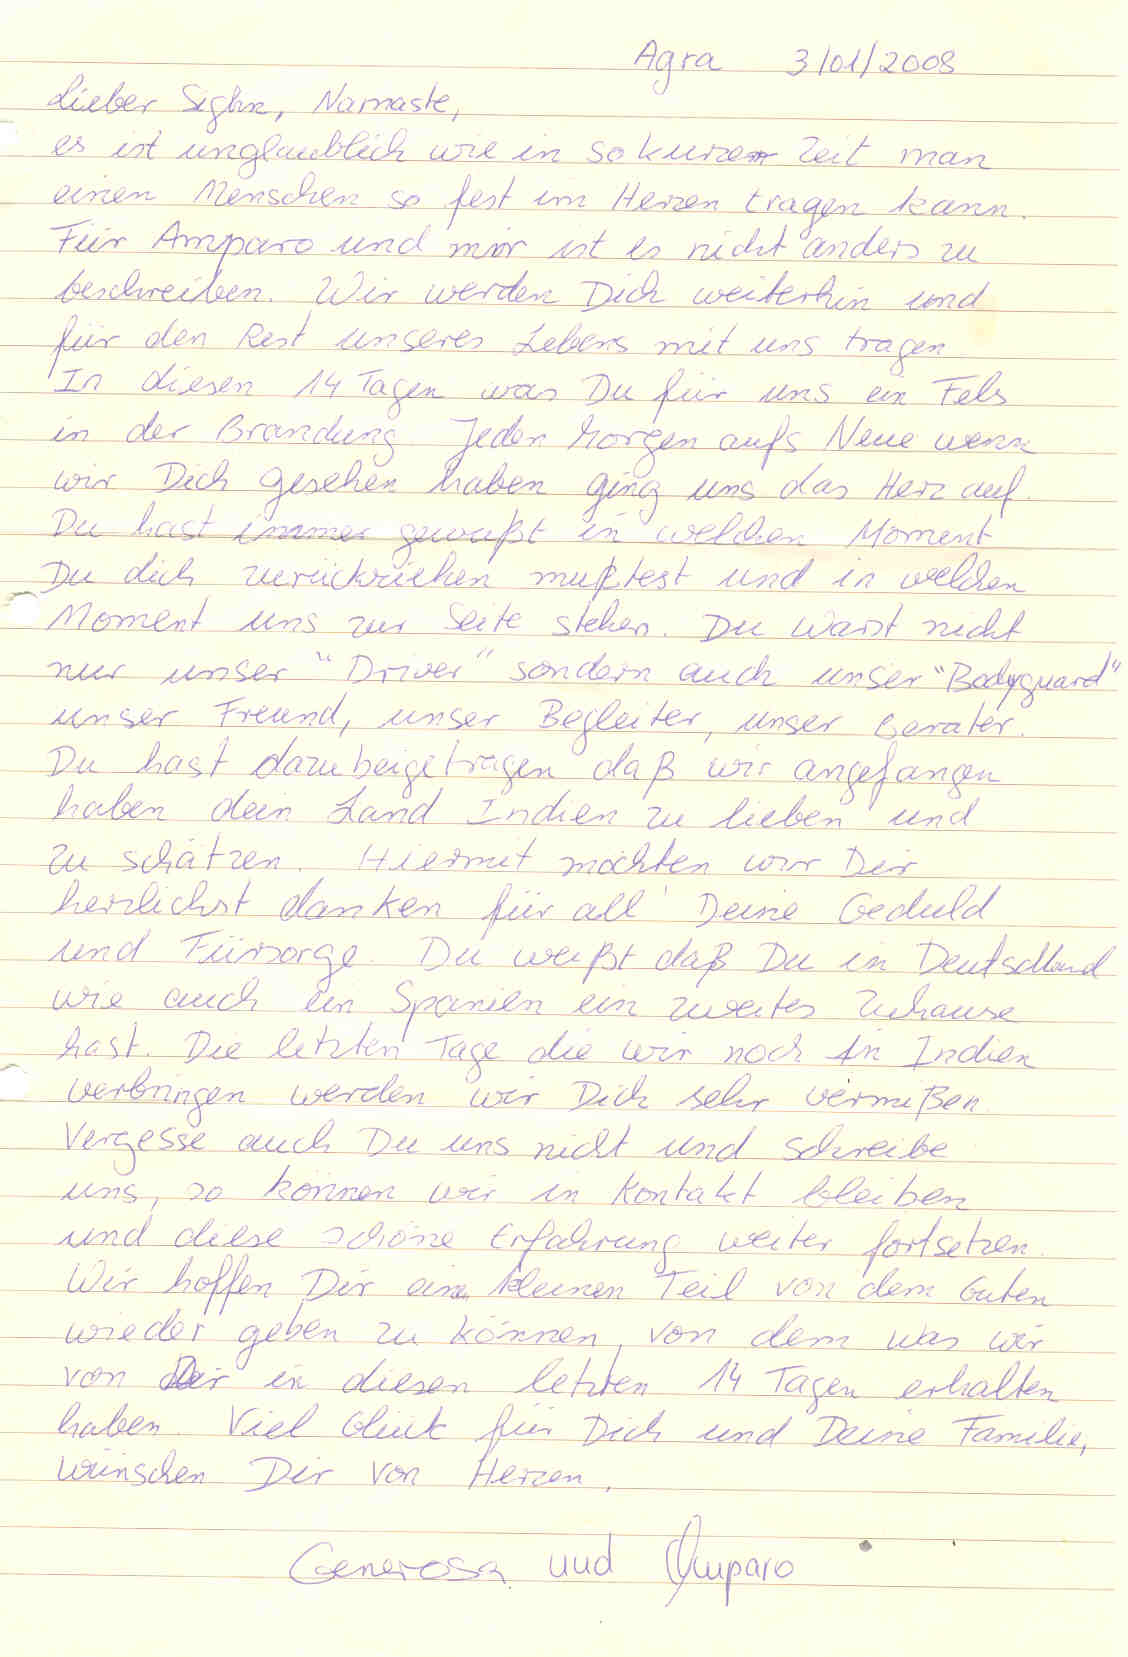 Agra 3/01/2008
Lieber Sighn, Namaste,
es ist unglaublich wie in so kurzer Zeit man
einen Menschen so fest im Herzen tragen kann.
Für Amparo und mir ist es nicht anders zu
beschreiben. Wir werden Dich weiterhin und
für den Rest unseres Lebens mit uns tragen.
In diesen 14 Tagen was Du für uns ein Fels
in der Brandung. Jeden Morgen aufs Neue wenn
wir Dich gesehen haben ging uns das Herz auf.
Du hast immer gewußt in welchen Moment
Du dich zurückziehen mußtest und in welchen
Moment uns zur Seite stehen. Du warst nicht
nur unser "Driver" sondern auch unser "Bodyguard"
unser Freund, unser Begleiter, unser Berater.
Du hast dazu beigetragen daß wir angefangen
haben dein Land Indien zu lieben und
zu schätzen. Hiermit möchten wir Dir
herzlichst danken für all' Deine Geduld
und Fürsorge. Du weißt daß Du in Deutschland
wie auch in Spanien ein zweites Zuhause
hast. Die letzten Tage die wir noch in Indien
verbringen werden wir Dich sehr vermißen.
Vergesse auch Du uns nicht und schreibe
uns, so können wir in Kontakt bleiben
und diese schöne Erfahrung weiter fortsetzen.
Wir hoffen Dir ein kleinen Teil von dem Guten
wieder geben zu können, von dem was wir
von Dir in diesen letzten 14 Tagen erhalten
haben. Viel Glück für Dich und Deine Familie,
wünschen Dir von Herzen,
Generosa und Amparo